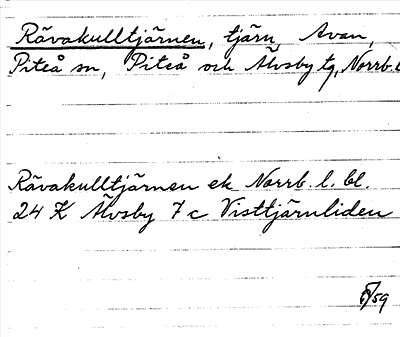 Rävakulltjärnen, tjärn, Avan,
Piteå sn, Piteå och Älvsby tg, Norrb. l
Rävakulltjärnen ek Norrb. l. bl.
24 K Älvsby 7 c Visttjärnliden
/59